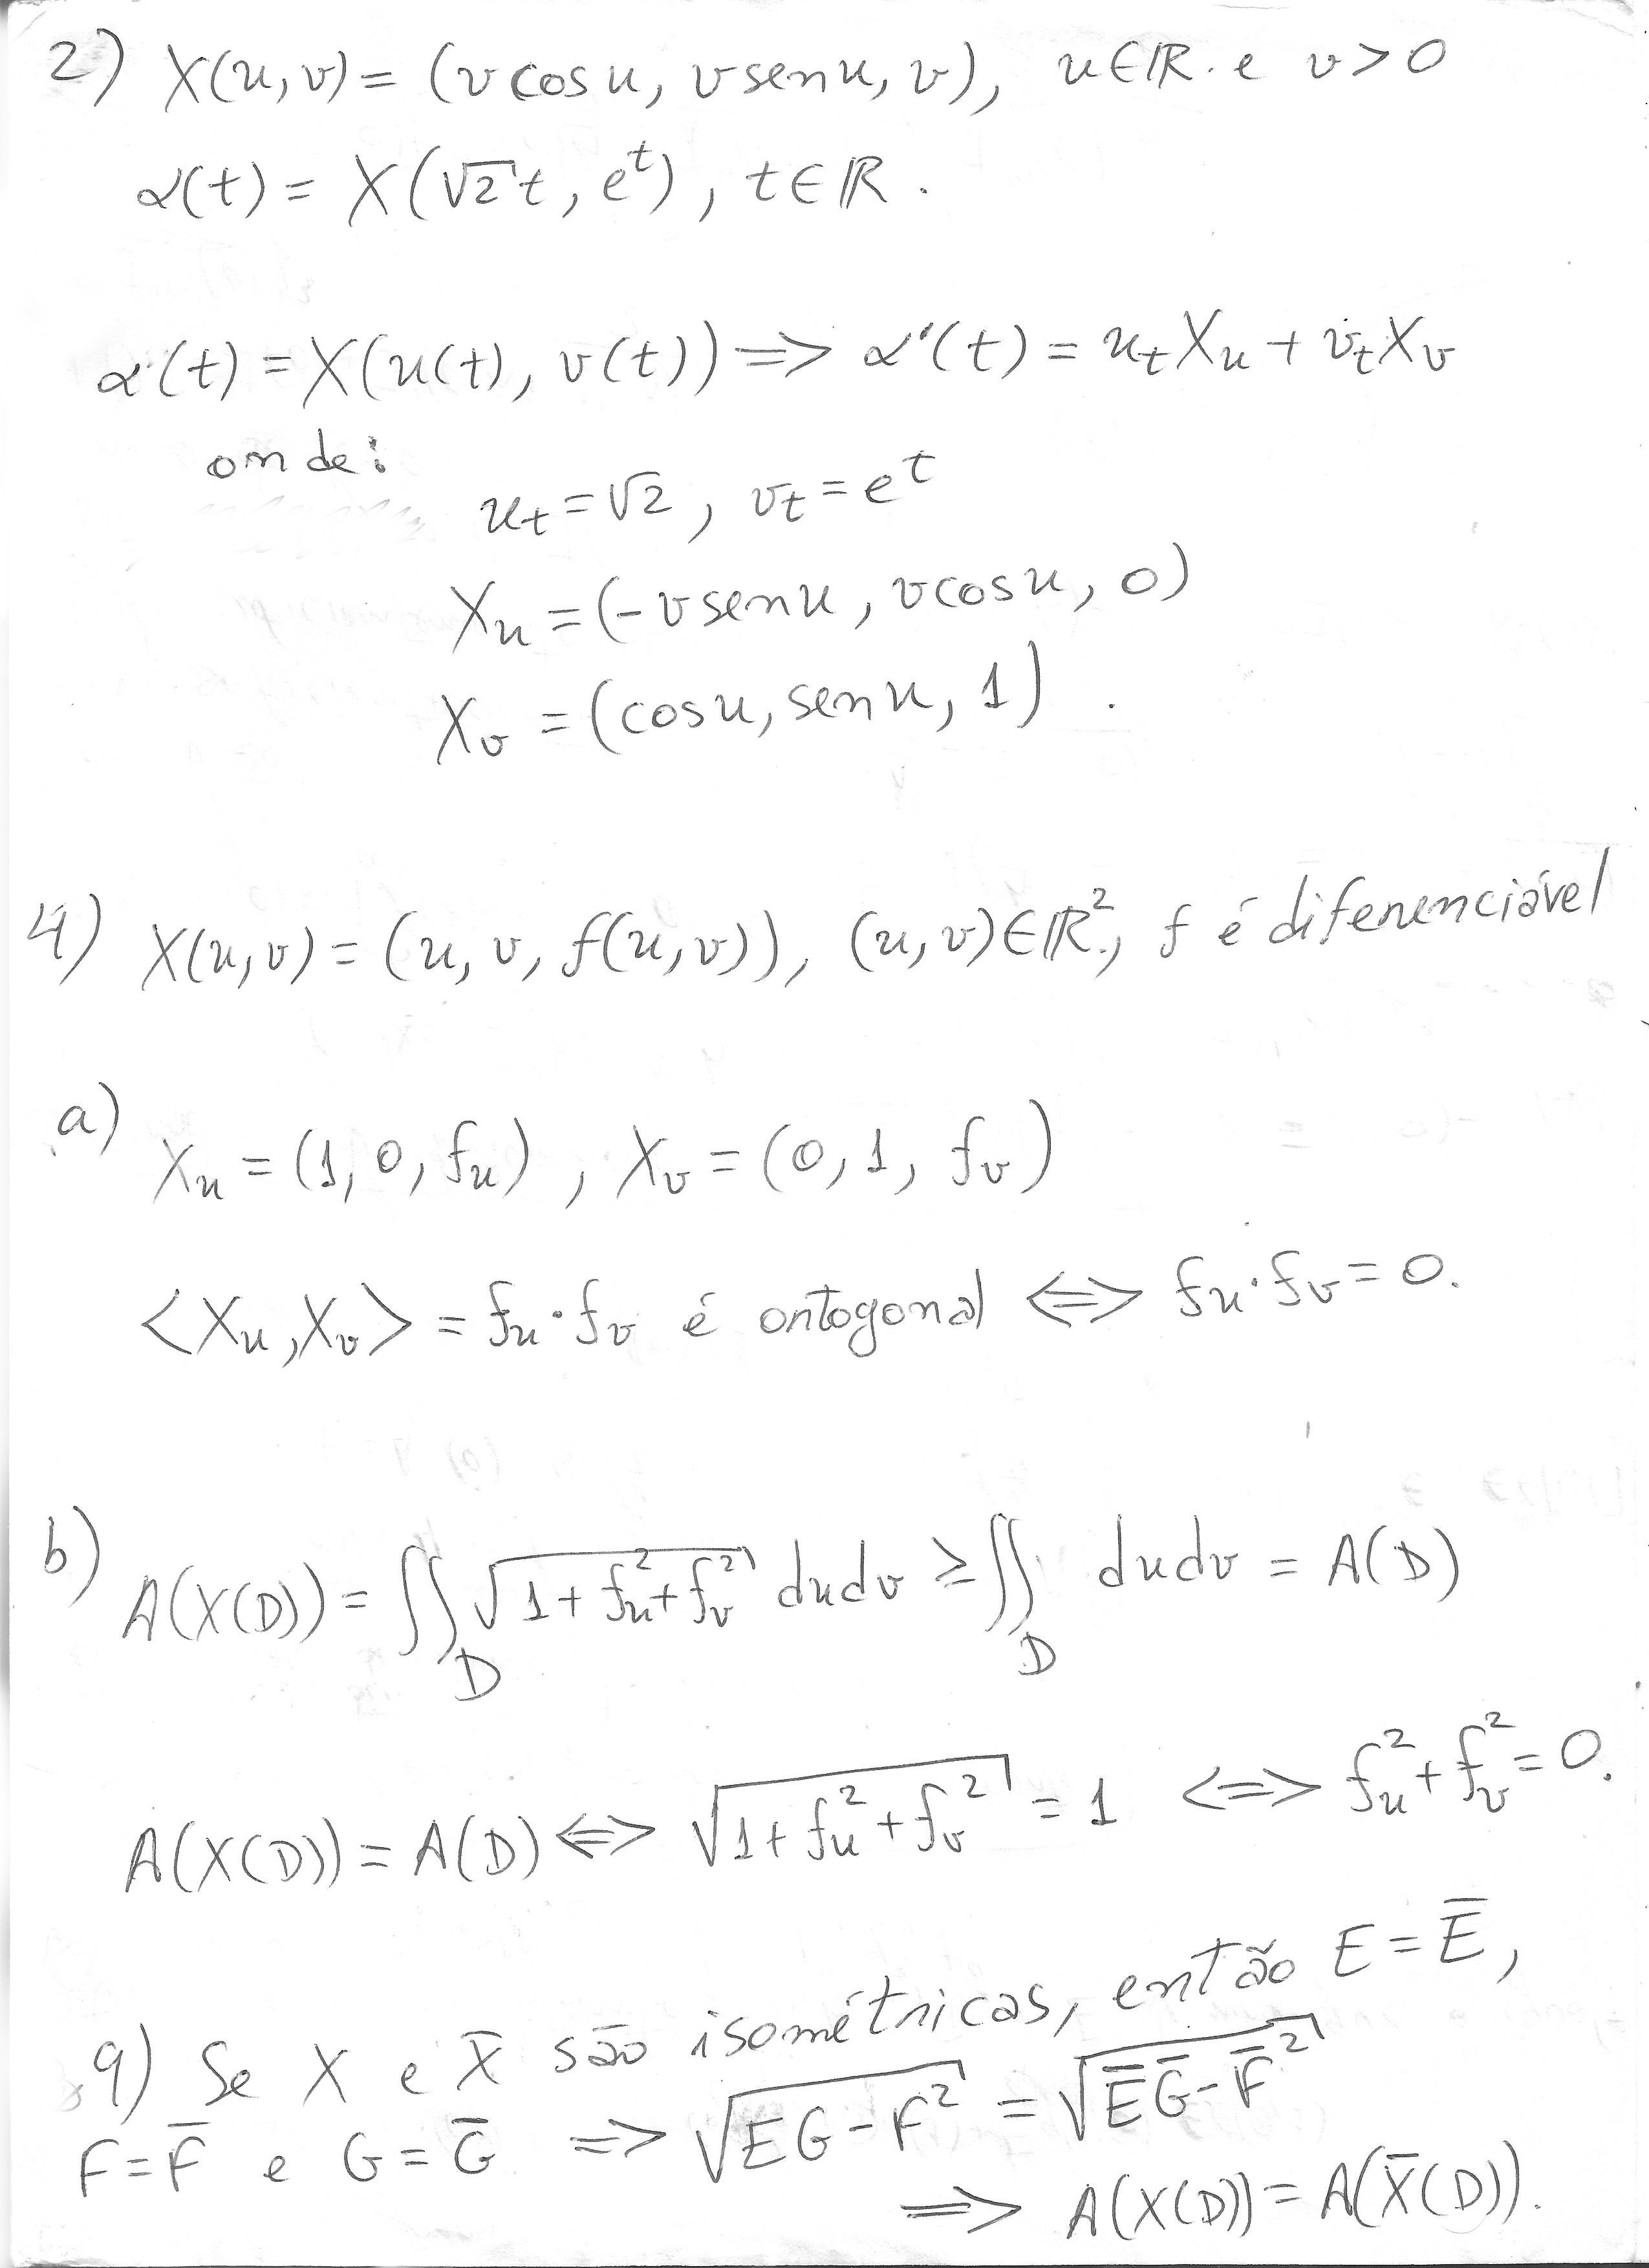 2) X(u,v) = (v cos u, v sen u, v), u∈ℝ. e v>0
α(t) = X(√2 t, e^t), t∈ℝ.
α(t) = X(u(t), v(t)) => α'(t) = u_t X_u + v_t X_v
onde:
u_t = √2, v_t = e^t
X_u = (-v sen u, v cos u, 0)
X_v = (cos u, sen u, 1).
4) X(u,v) = (u, v, f(u,v)), (u,v)∈ℝ², f é diferenciável
a)
X_u = (1, 0, f_u), X_v = (0, 1, f_v)
<X_u, X_v> = f_u · f_v é ortogonal <=> f_u · f_v = 0.
b)
A(X(D)) = ∬_D √(1 + f_u² + f_v²) du dv ≥ ∬_D du dv = A(D)
A(X(D)) = A(D) <=> √(1 + f_u² + f_v²) = 1 <=> f_u² + f_v² = 0.
9) Se X e X̄ são isométricas, então E = Ē,
F = F̄ e G = Ḡ => √(EG - F²) = √(ĒḠ - F̄²)
=> A(X(D)) = A(X̄(D)).